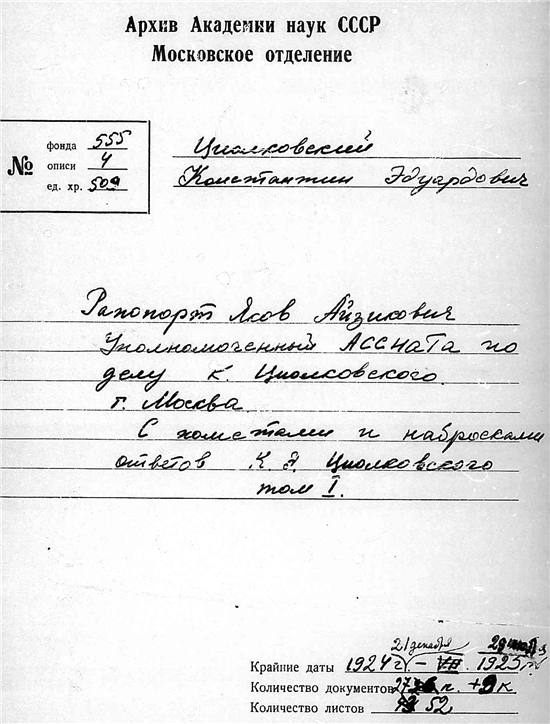 Архив Академии наук СССР
Московское отделение
№
фонда 555
описи 4
ед. хр. 509
Циолковский
Константин Эдуардович
Рапопорт Яков Айзикович
Уполномоченный АССНАТа по
делу К. Циолковского.
г. Москва
С пометами и набросками
ответов К. Э. Циолковского
том I.
21 декабря
Крайние даты 1924 г. – VII 1925 г.
Количество документов
Количество листов 52